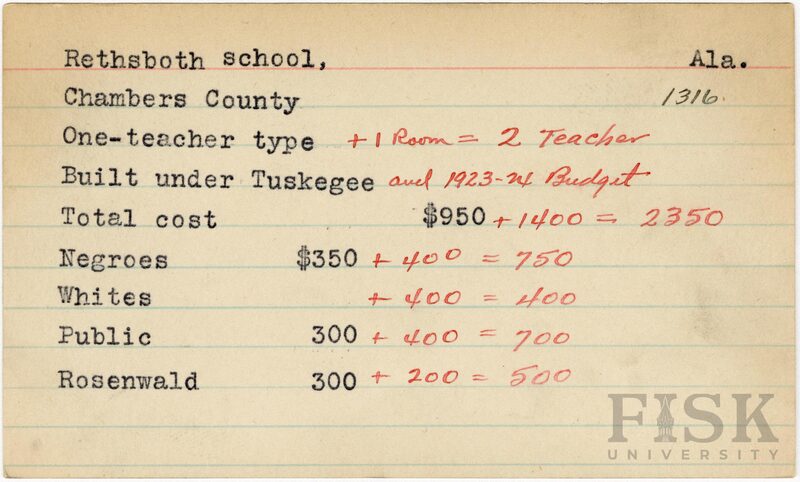 Rethsboth school, Ala.
Chambers County 1316
One-teacher type + 1 Room = 2 Teacher
Built under Tuskegee and 1923-24 Budget
Total cost $950 + 1400 = 2350
Negroes $350 + 400 = 750
Whites + 400 = 400
Public 300 + 400 = 700
Rosenwald 300 + 200 = 500
FISK
UNIVERSITY